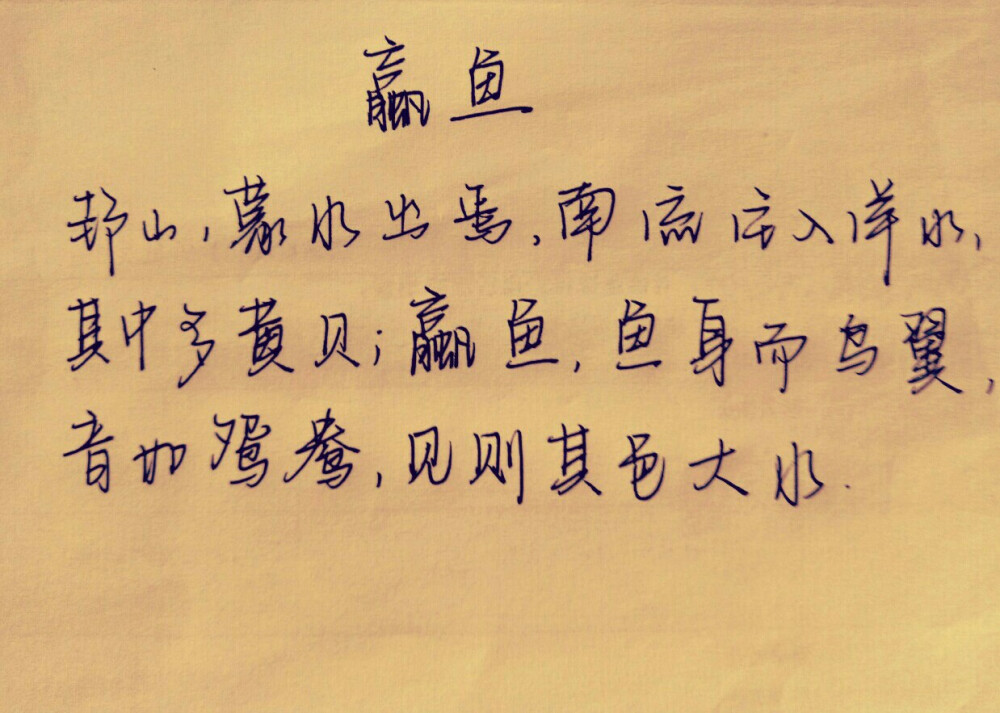 赢鱼
邽山,蒙水出焉,南流注入洋水,
其中多黄贝;赢鱼,鱼身而鸟翼,
音如鸳鸯,见则其邑大水.